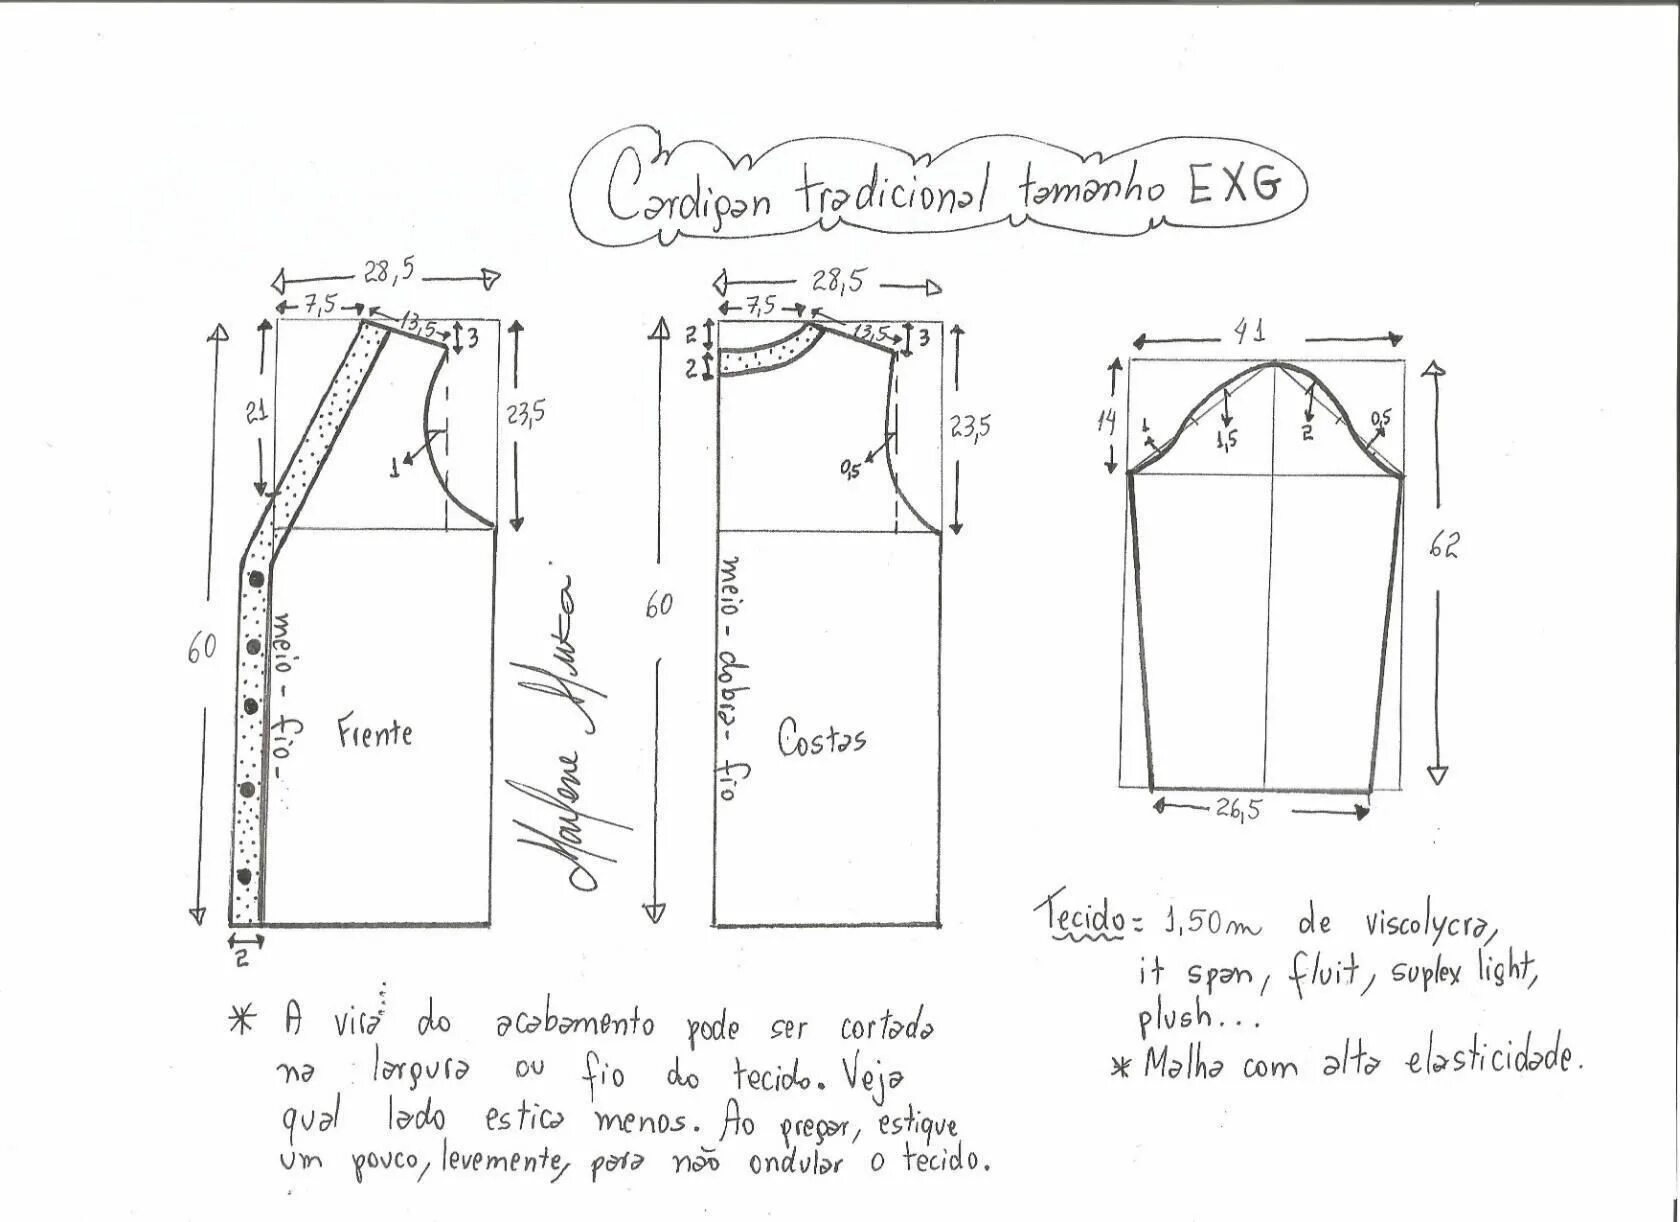 Cardigan tradicional tamanho EXG
28,5
7,5
13,5
3
21
23,5
1
60
meio - fio -
Frente
2
Marlene Mukai
28,5
7,5
2
2
13,5
3
23,5
0,5
60
meio - dobra - fio
Costas
41
14
1
1,5
2
0,5
62
26,5
Tecido = 1,50m de viscolycra,
it span, fluit, suplex light,
plush...
* Malha com alta elasticidade.
* A vira do acabamento pode ser cortada
na largura ou fio do tecido. Veja
qual lado estica menos. Ao pregar, estique
um pouco, levemente, para não ondular o tecido.